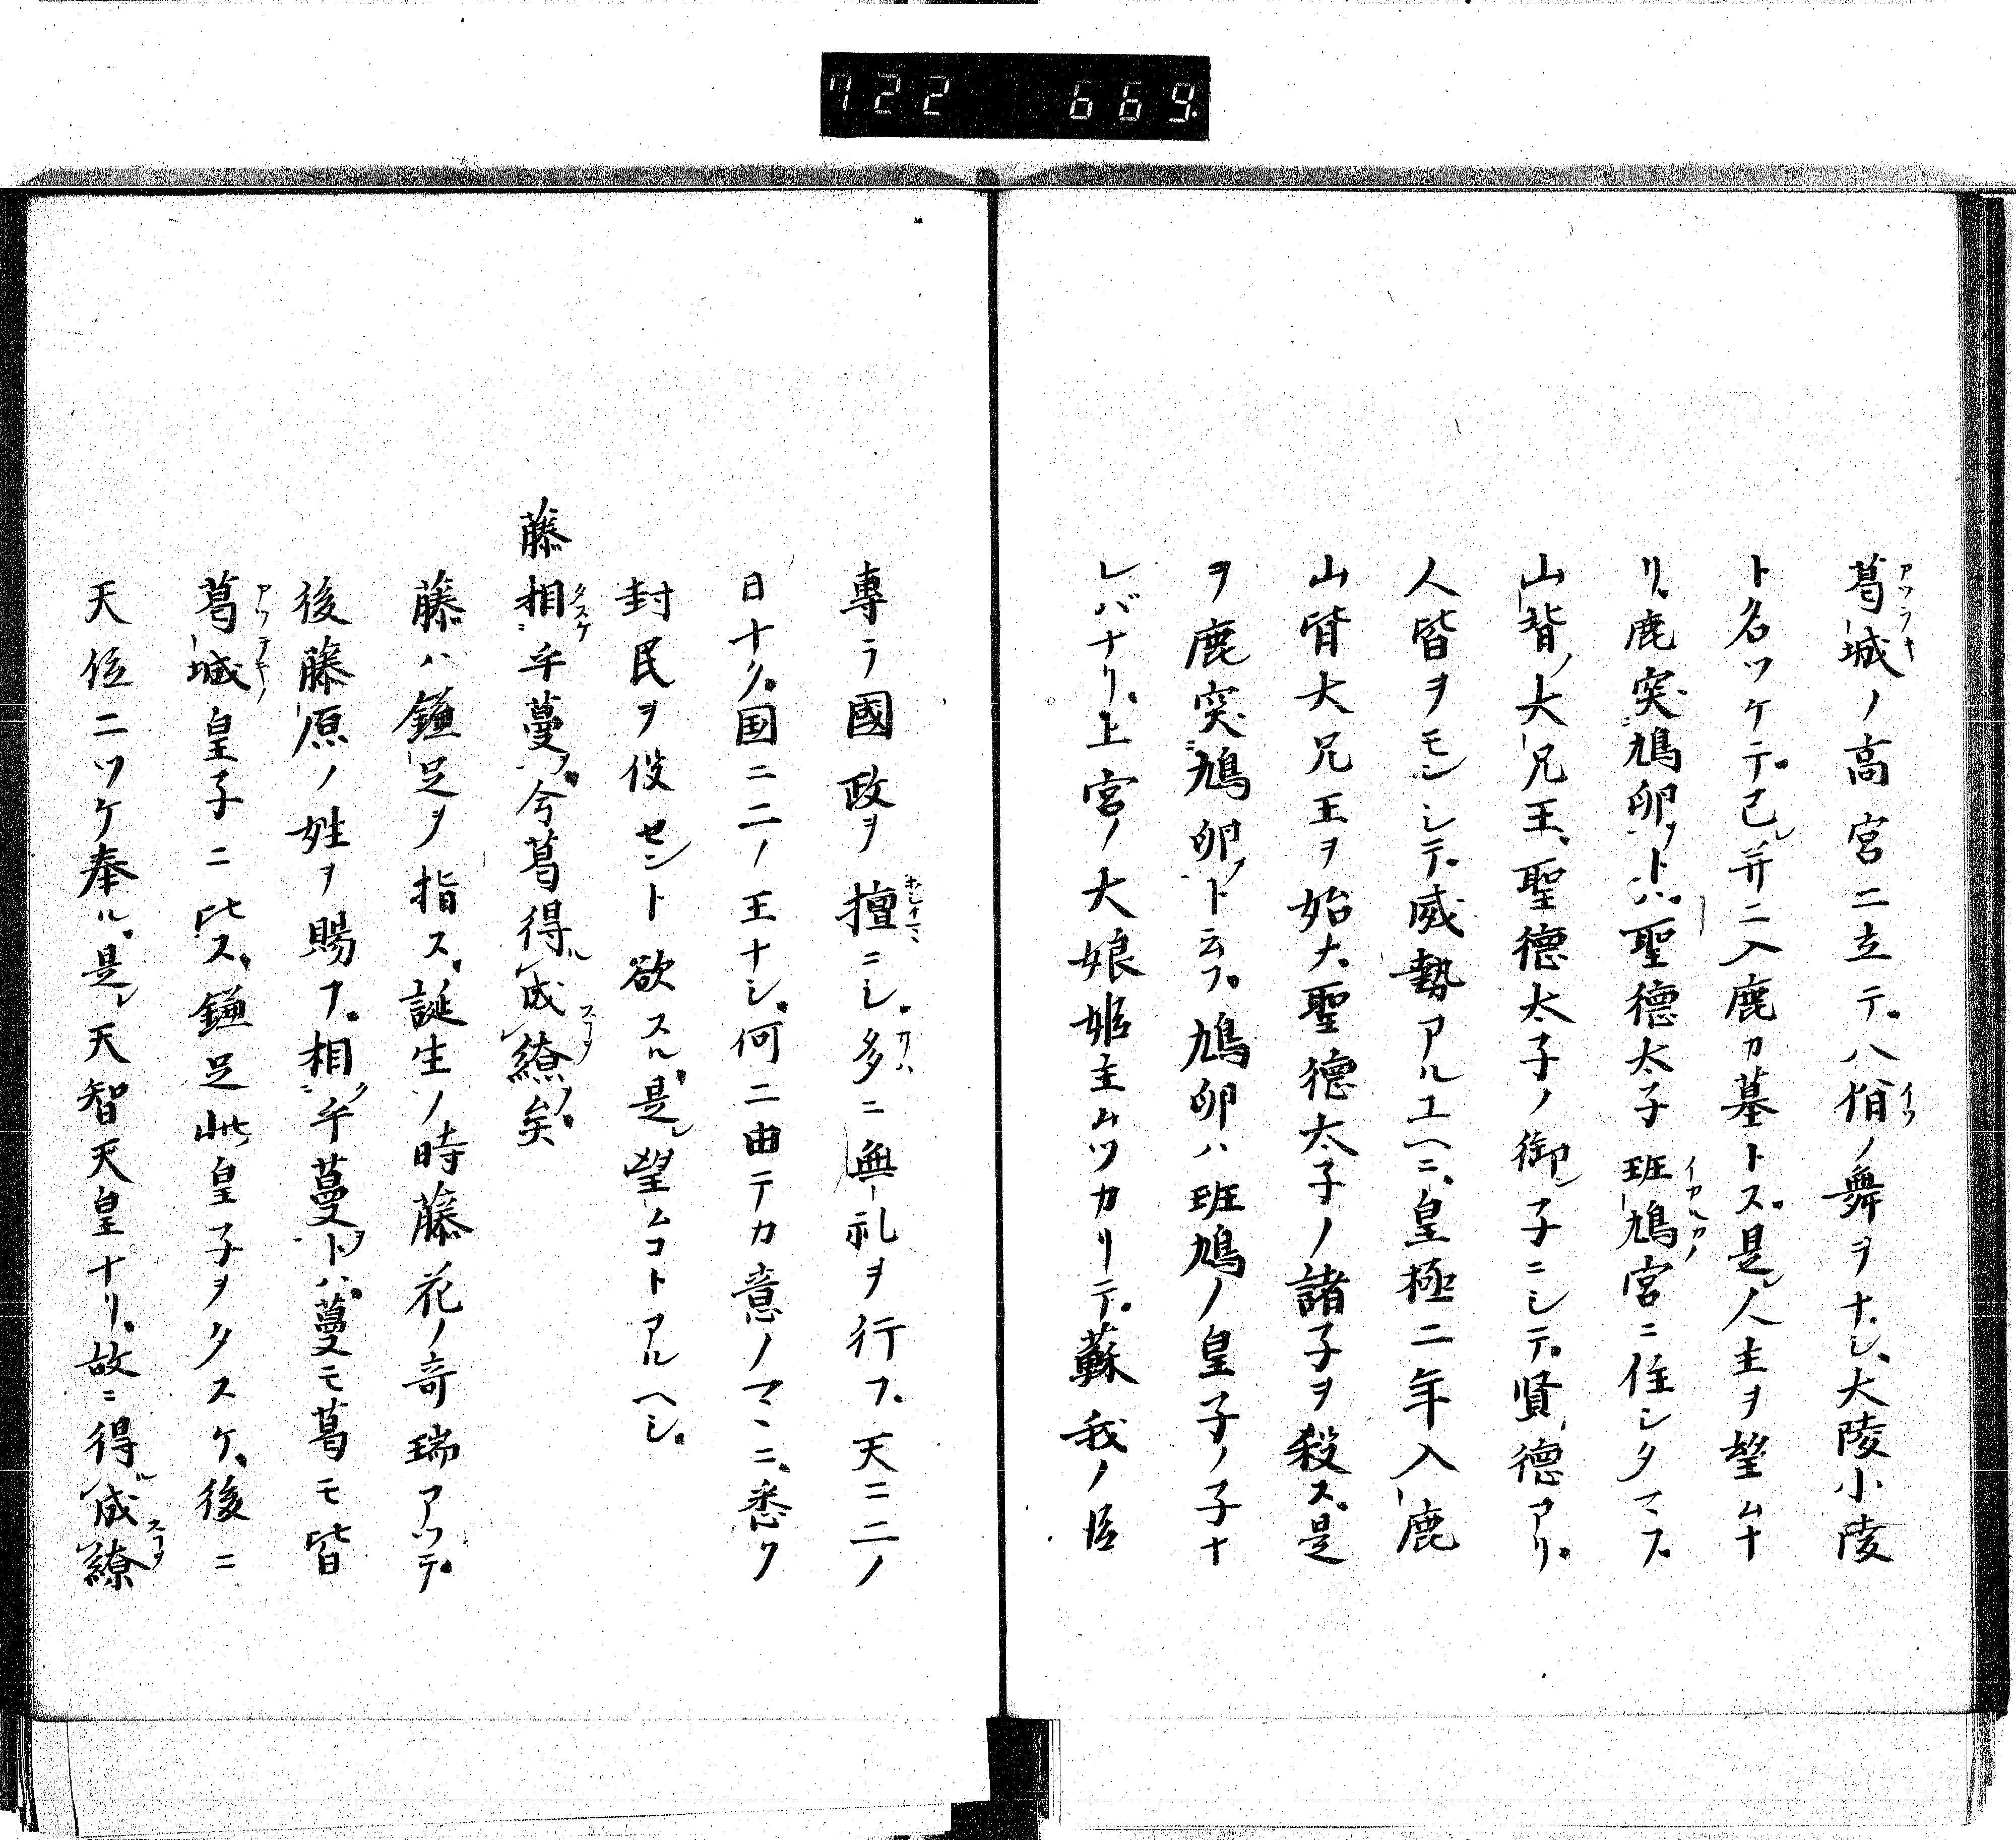 722 669.
葛城ノ高宮ニ立テ。八佾ノ舞ヲナシ、大陵小陵
ト名ツケテ。己レ并ニ入鹿カ墓トス。是レ人主ヲ望ムナ
リ。鹿突ニ鳩卵ヲトハ。聖德太子班鳩宮ニ住シタマフ。
山背ノ大兄王、聖德太子ノ御子ニシテ。賢德アリ。
人皆ヲモンシテ。威勢アルユヘニ、皇極二年入鹿
山背大兄王ヲ始ナ。聖德太子ノ諸子ヲ殺ス。是
ヲ鹿突ニ鳩卵ヲト云フ。鳩卵ハ班鳩ノ皇子ノ子ナ
レバナリ。上宮ノ大娘姫主ムツカリテ。蘇我ノ臣
專ラ國政ヲ擅ニシ。多ニ無礼ヲ行フ。天ニ二ノ
日ナク。国ニ二ノ王ナシ。何ニ由テカ意ノマヽニ、悉ク
封民ヲ役センート欲スル。是レ望ムコトアルヘシ。
藤相ニ乎蔓ヲ。今葛得ル成繚ヲ矣
藤ハ鎌足ヲ指ス。誕生ノ時藤花ノ奇瑞アツテ。
後藤原ノ姓ヲ賜フ。相ニ乎蔓ヲトハ。蔓モ葛モ皆
葛城皇子ニ比ス。鎌足此皇子ヲタスケ。後ニ
天位ニツケ奉ル。是レ天智天皇ナリ。故ニ得ル成繚